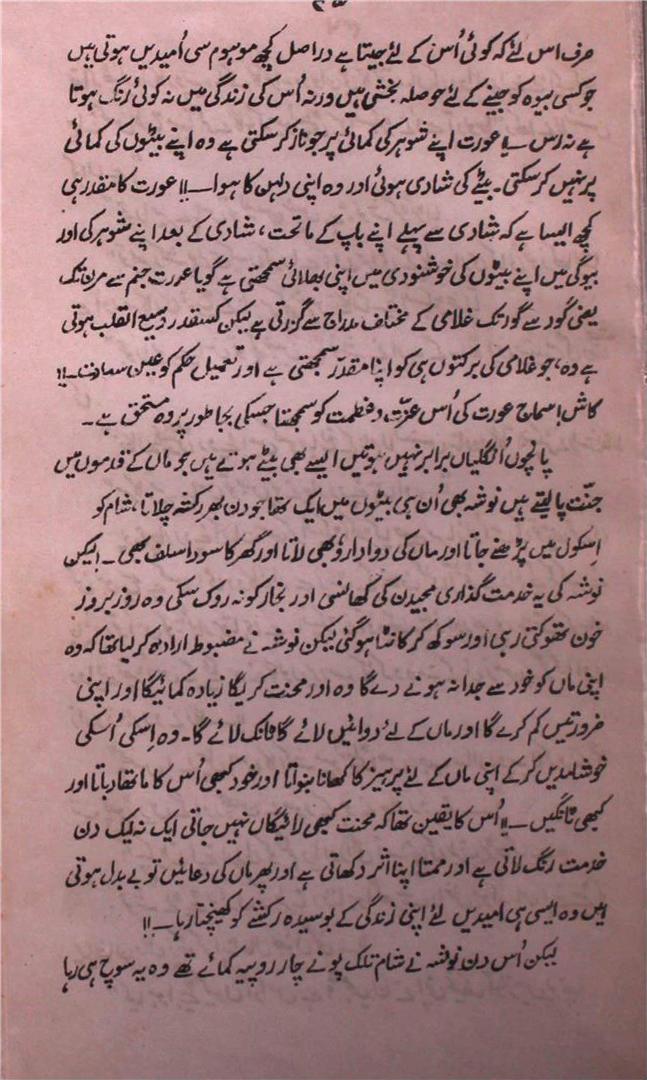 صرف اس لئے کہ کوئی اُس کے لئے جیتا ہے دراصل کچھ موہوم سی اُمیدیں ہوتی ہیں
جو کسی بیوہ کو جینے کے لئے حوصلہ بخشتی ہیں ورنہ اُس کی زندگی میں نہ کوئی رنگ ہوتا
ہے نہ رس ـ !! عورت اپنے شوہر کی کمائی پر جو ناز کر سکتی ہے وہ اپنے بیٹوں کی کمائی
پر نہیں کر سکتی۔ بیٹے کی شادی ہوئی اور وہ اپنی دلہن کا ہوا ـ !! عورت کا مقدر ہی
کچھ ایسا ہے کہ شادی سے پہلے اپنے باپ کے ماتحت ، شادی کے بعد اپنے شوہر کی اور
بیوگی میں اپنے بیٹوں کی خوشنودی میں اپنی بھلائی سمجھتی ہے گویا عورت جنم سے مرن تک
یعنی گود سے گور تک غلامی کے مختلف مدراج سے گزرتی ہے لیکن کسقدر وسیع القلب ہوتی
ہے وہ، جو غلامی کی برکتوں ہی کو اپنا مقدر سمجھتی ہے اور تعمیل حکم کو عین سعادت ـ !!
کاش! سماج عورت کی اُس عزت و عظمت کو سمجھتا جسکی بجا طور پر وہ مستحق ہے ۔
پانچوں اُنگلیاں برابر نہیں ہوتیں ایسے بھی بیٹے ہوتے ہیں جو ماں کے قدموں میں
جنّت پا لیتے ہیں نوشہ بھی اُن ہی بیٹوں میں ایک تھا جو دن بھر رکشہ چلاتا، شام کو
اِسکول میں پڑھنے جاتا اور ماں کی دوا دارو بھی لاتا اور گھر کا سودا سلف بھی ۔ لیکن
نوشہ کی یہ خدمت گذاری مجیدن کی کھانسی اور بخار کو نہ روک سکی وہ روز بروز
خون تھوکتی رہی اور سوکھ کر کانٹا ہو گئی لیکن نوشہ نے مضبوط ارادہ کر لیا تھا کہ وہ
اپنی ماں کو خود سے جدا نہ ہونے دے گا وہ اور محنت کریگا زیادہ کمائیگا اور اپنی
ضرورتیں کم کرے گا اور ماں کے لئے دوائیں لائے گا ٹانک لائے گا۔ وہ اِسکی اُسکی
خوشامدیں کر کے اپنی ماں کے لئے پرہیز کا کھانا بنواتا اور خود کبھی اُس کا ماتھا دباتا اور
کبھی ٹانگیں ـ !! اُس کا یقین تھا کہ محنت کبھی رائیگاں نہیں جاتی ایک نہ ایک دن
خدمت رنگ لاتی ہے اور ممتا اپنا اثر دکھاتی ہے اور پھر ماں کی دعائیں تو بے بدل ہوتی
ہیں وہ ایسی ہی امیدیں لئے اپنی زندگی کے بوسیدہ رکشے کو کھینچتا رہا ـ !!
لیکن اُس دن نوشہ نے شام تلک پونے چار روپیہ کمائے تھے وہ یہ سوچ ہی رہا